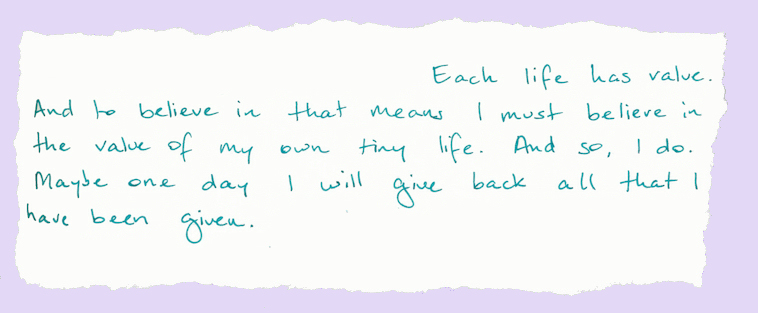 Each life has value.
And to believe in that means I must believe in
the value of my own tiny life. And so, I do.
Maybe one day I will give back all that I
have been given.